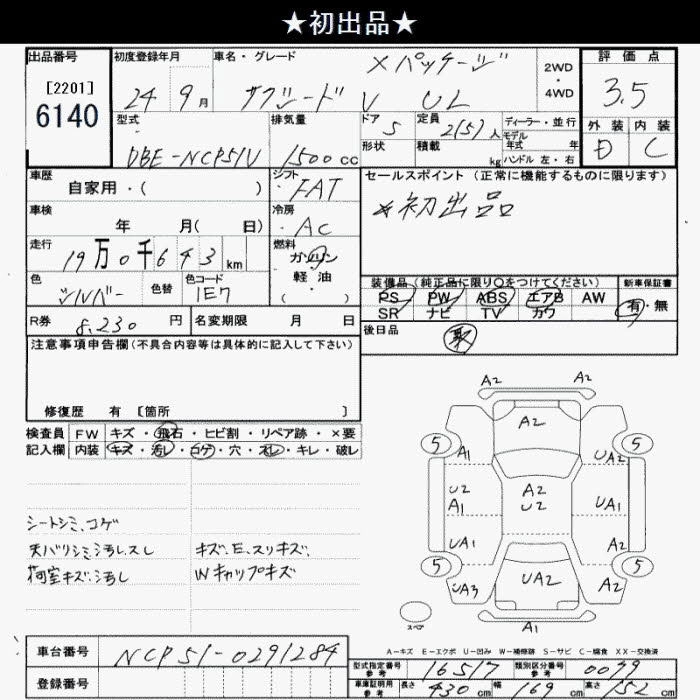 ★初出品★
出品番号
[2201]
6140
初度登録年月
24 9月
車名・グレード
Xパッケージ
サクシード V UL
2WD
・
4WD
評価点
3.5
外装 内装
D C
型式
DBE-NCP51V
排気量
1500 cc
ドア 5
定員 2(5)人
形状
積載 kg
ディーラー・並行
モデル
年式 年
ハンドル 左・右
車歴
自家用・( )
シフト
FAT
セールスポイント(正常に機能するものに限ります)
*初出品
車検
年 月( 日)
冷房
AC
走行
19万0千643 km
燃料
ガソリン
軽油
( ・ )
色
シルバー
色替
色コード
1E7
装備品(純正品に限り○をつけてください)
PS PW ABS エアB AW
SR ナビ TV カワ
新車保証書
有・無
R券 8,230 円
名変期限 月 日
後日品
取
注意事項申告欄(不具合内容等は具体的に記入して下さい)
修復歴 有 [箇所 ]
検査員 FW キズ・飛石・ヒビ割・リペア跡・×要
記入欄 内装 キズ・汚レ・コゲ・穴・スレ・キレ・破レ
シートシミ、コゲ
天バリシミ汚レスレ
荷室キズ、汚レ
キズ、E、スリキズ、
Wキャップキズ
A2 A2
A2
5 5
A1 AA1
U2 A2 UA1
A1 U2
UA1 A2
5 5
UA3 UA2 A2
スペア
A1
A-キズ E-エクボ U-凹み W-補修跡 S-サビ C-腐食 XX-交換済
車台番号 NCP51-0291284
登録番号
型式指定番号
参考
16517
類別区分番号
参考
0079
車庫証明用
参考
長さ 430 cm 幅 169 cm 高さ 152 cm